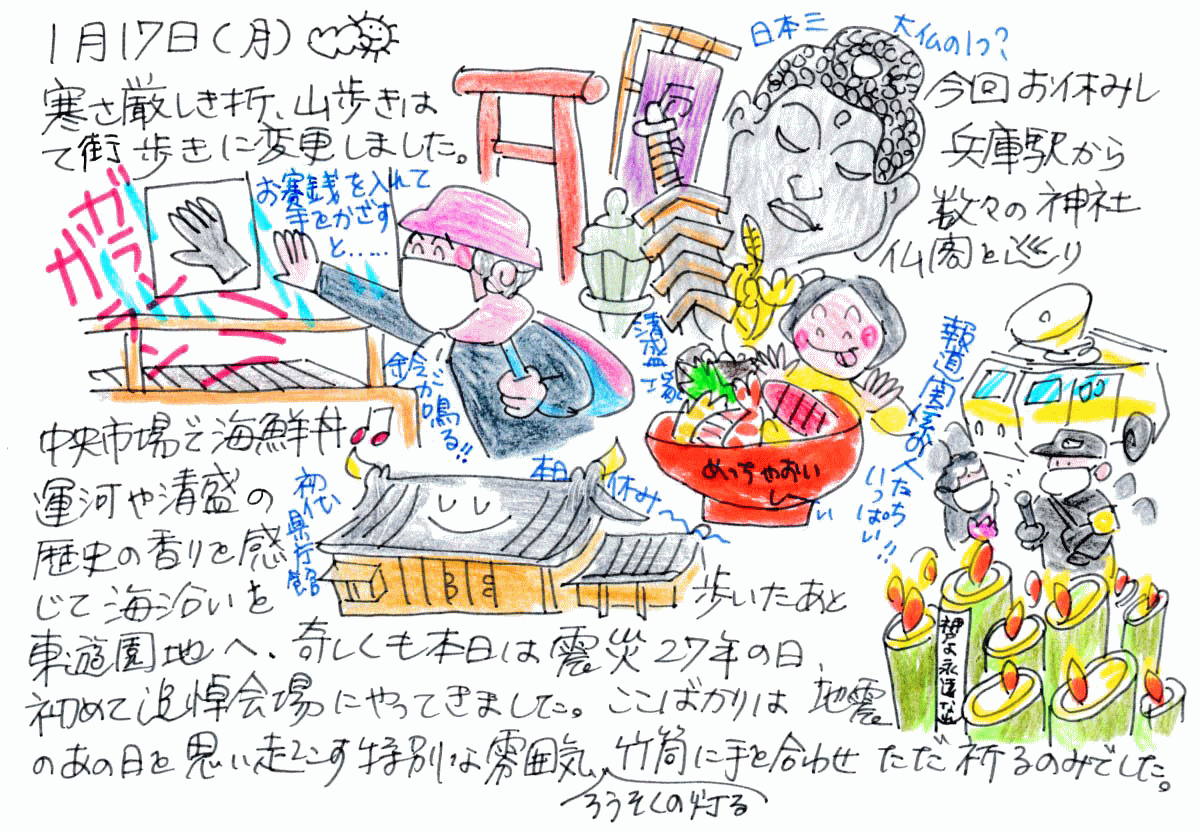 1月17日(月)
日本三大仏の1つ?
寒さ厳しき折、山歩きは
今回お休みし
て街歩きに変更しました。
兵庫駅から
数々の神社
仏閣を巡り
お賽銭を入れて
手をかざすと……
ガランガラン
鈴が鳴る!!
清盛塚
中央市場で海鮮丼
めっちゃおいしい
運河や清盛の
歴史の香りを感
じて海沿いを
歩いたあと
初代県庁館
本日休み〜
報道関係の人たちいっぱい!!
東遊園地へ、奇しくも本日は震災27年の日、
初めて追悼会場にやってきました。ここばかりは地震
のあの日を思い起こす特別な雰囲気、竹筒に手を合わせただ祈るのみでした。
ろうそくの灯る